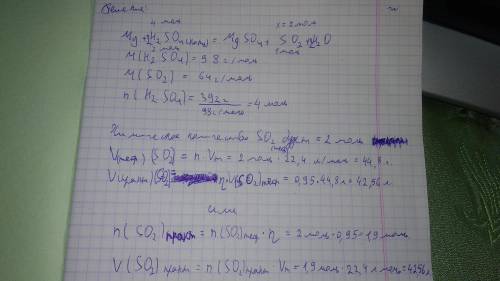 Решение
4 моль x = 2 моль
Mg + 2H₂SO₄(конц) = MgSO₄ + SO₂ + 2H₂O
2 моль 1 моль
M(H₂SO₄) = 98 г/моль
M(SO₂) = 64 г/моль
n(H₂SO₄) = 392 г / 98 г/моль = 4 моль
Химическое количество SO₂ (теор) будет = 2 моль
V(теор)(SO₂) = n · Vm = 2 моль · 22,4 л/моль = 44,8 л.
V(практ)(SO₂) = η · V(SO₂)теор = 0,95 · 44,8 л = 42,56 л.
или
n(SO₂)практ = n(SO₂)теор · η = 2 моль · 0,95 = 1,9 моль
V(SO₂)практ = n(SO₂)практ · Vm = 1,9 моль · 22,4 л/моль = 42,56 л